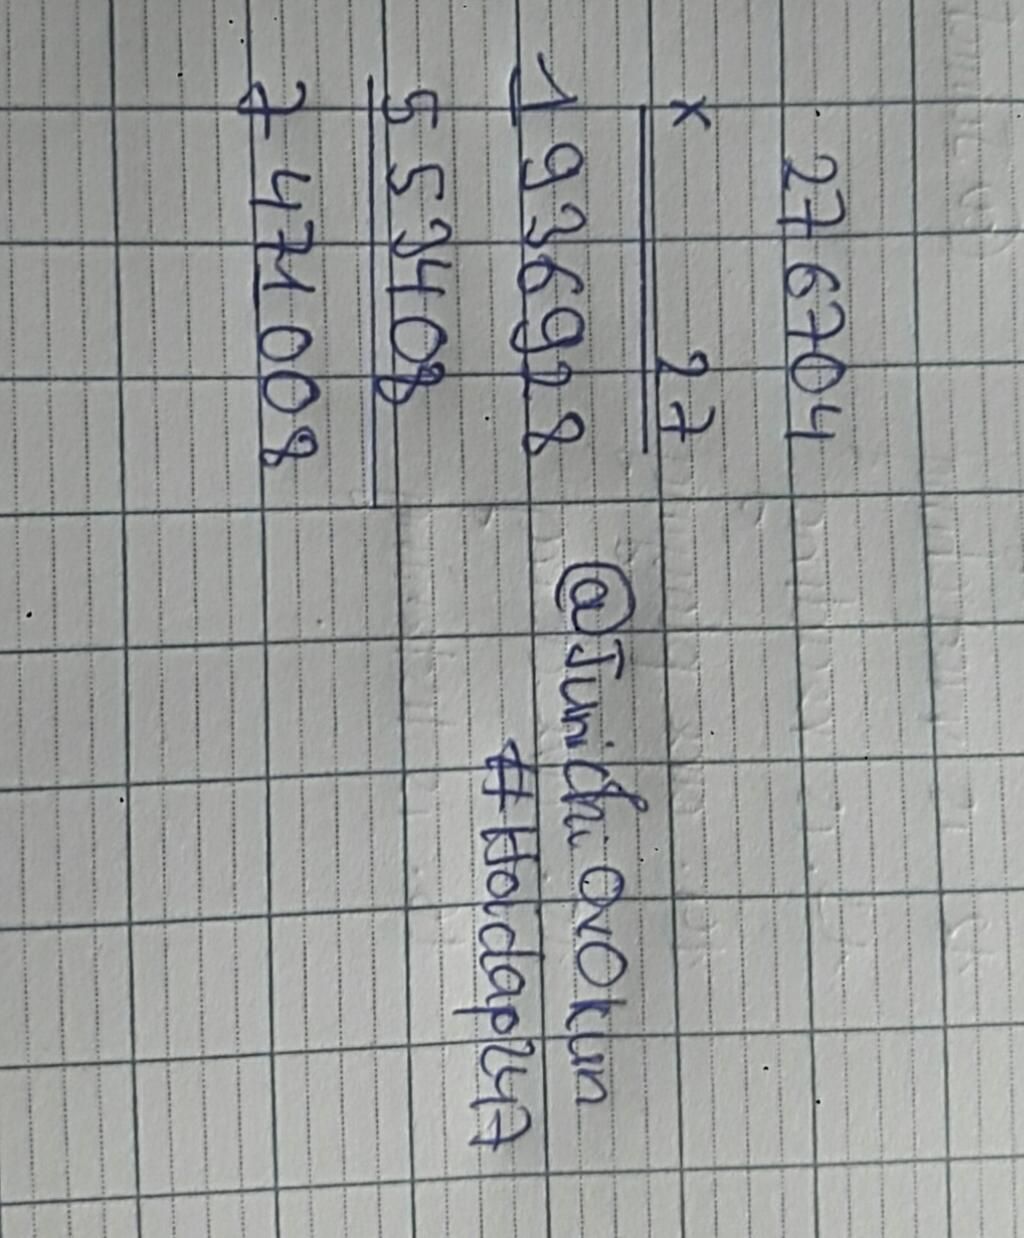 276704
x 27
1936928
553408
7471008
@Junichi OvOkun
#Hoidap247